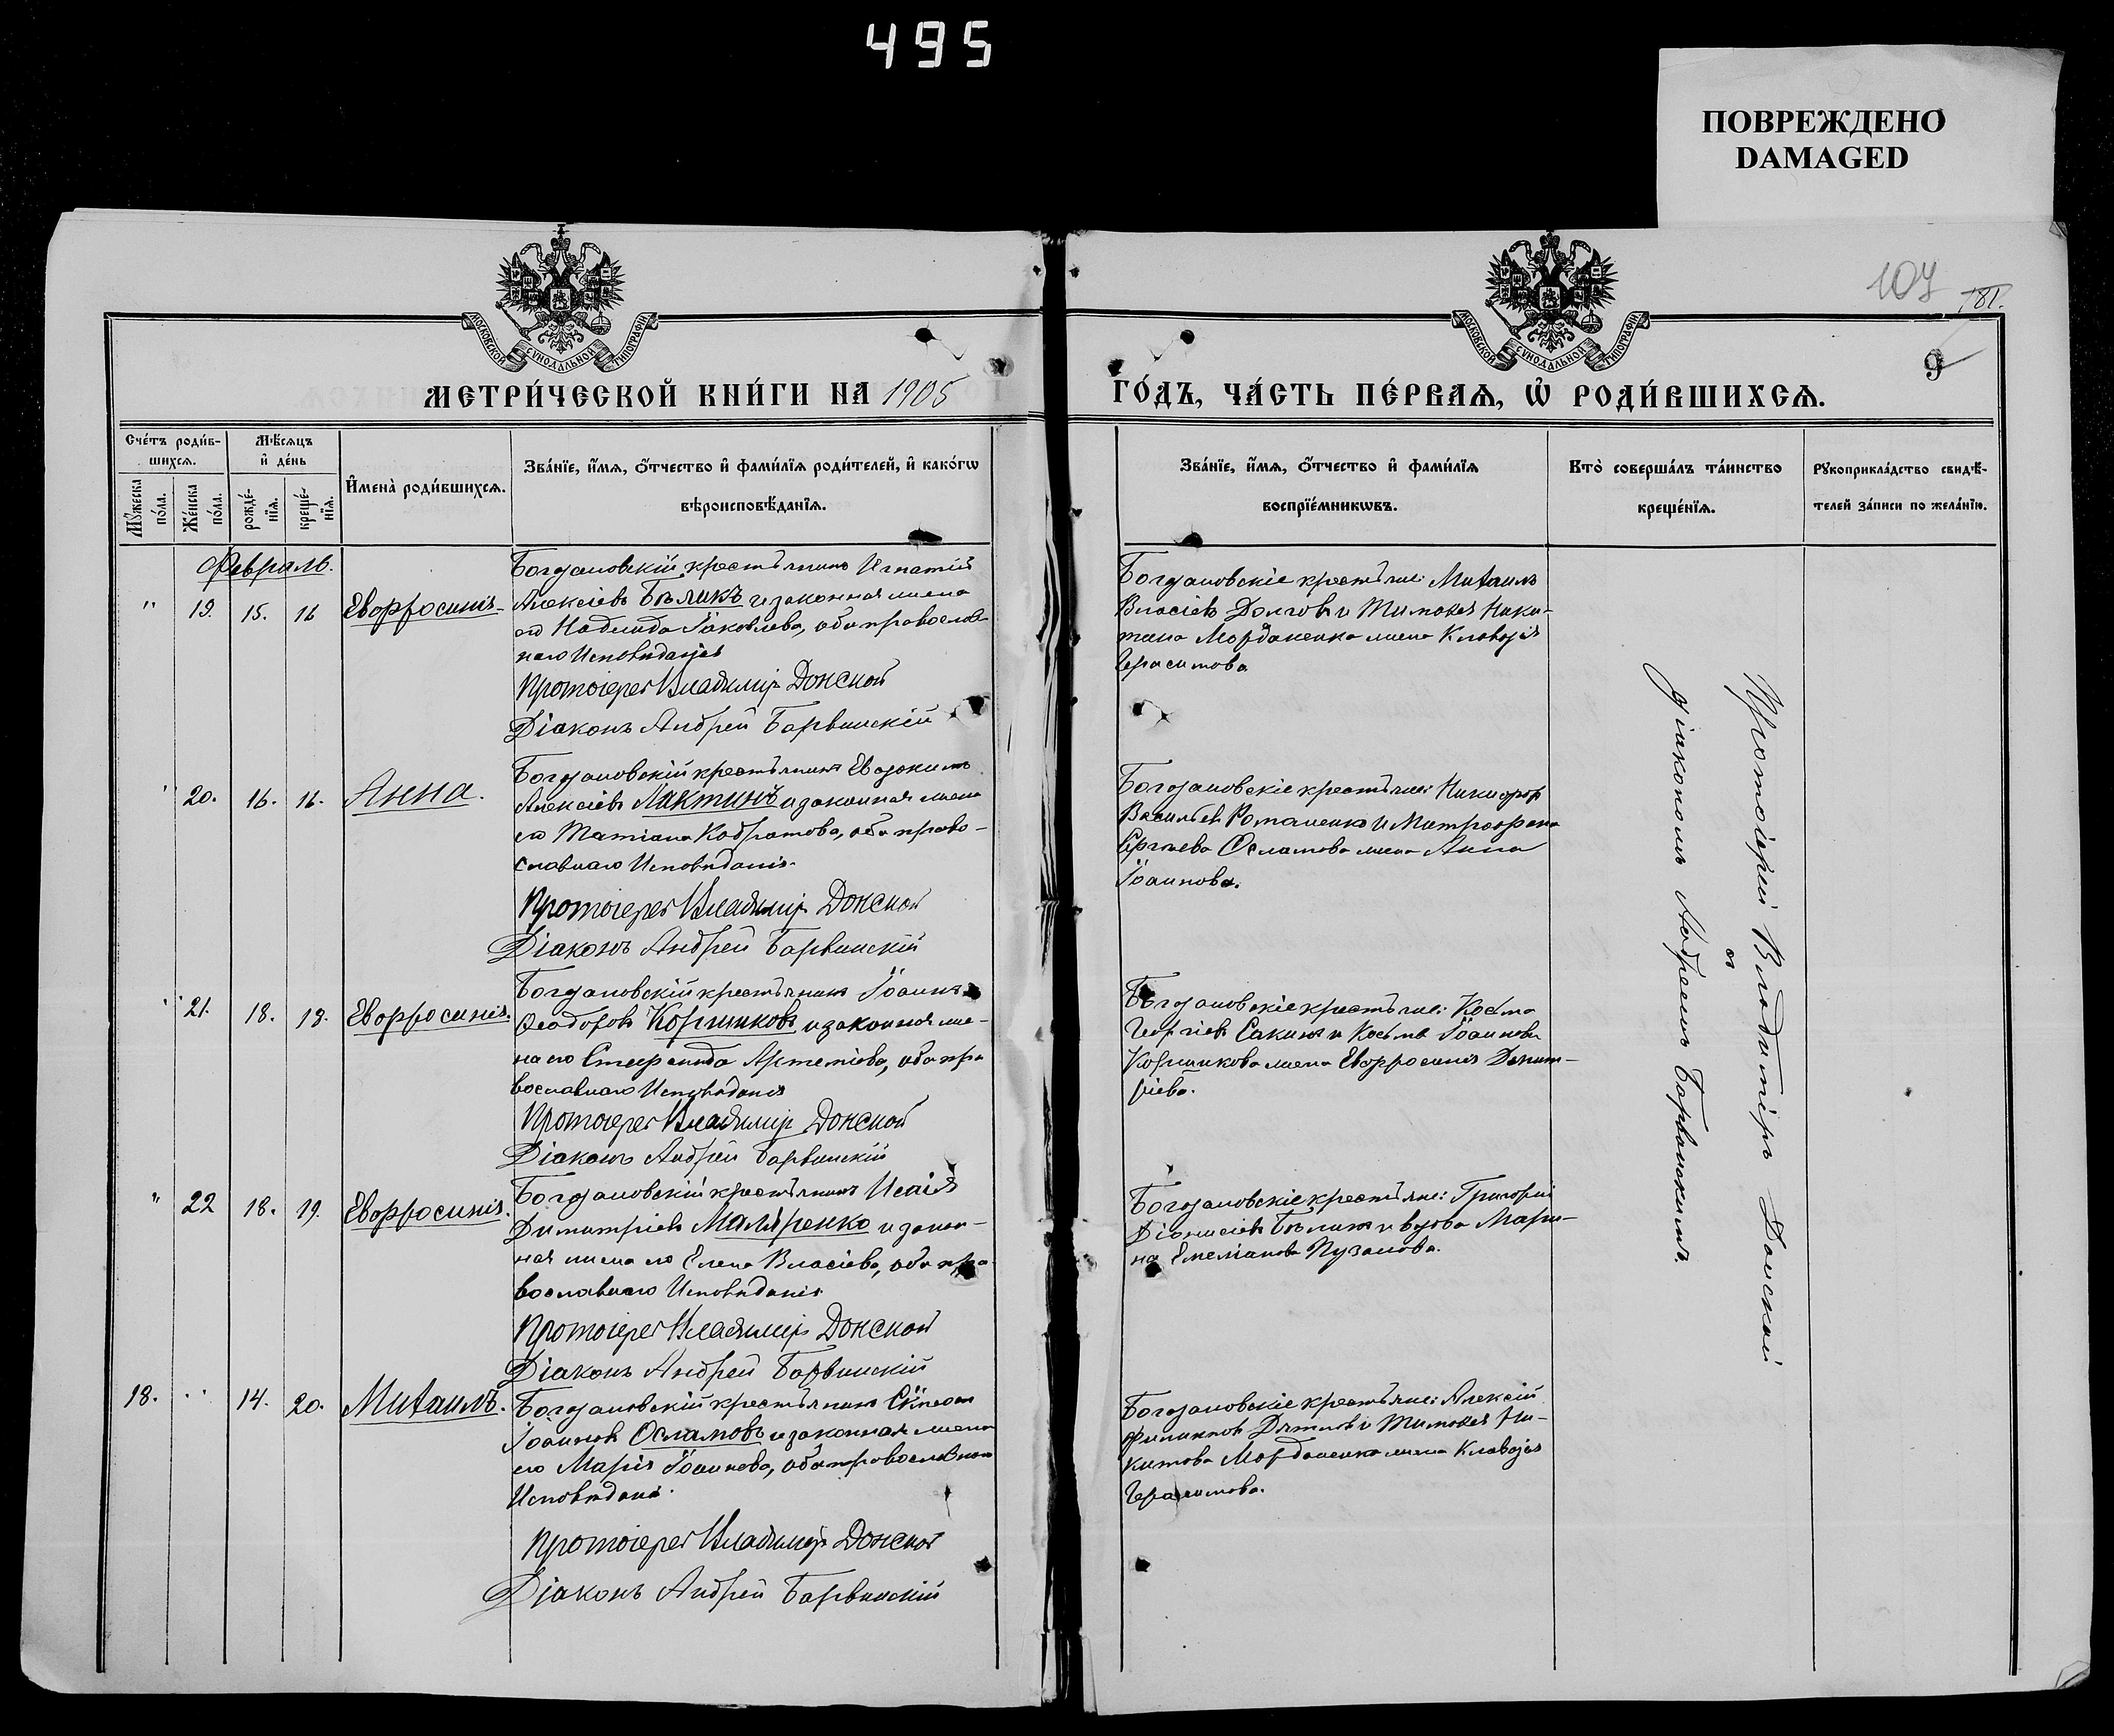 495
ПОВРЕЖДЕНО
DAMAGED
107
181.
9
МОСКОВСКОЙ СѴНОДАЛЬНОЙ ТИПОГРАФІИ
МОСКОВСКОЙ СѴНОДАЛЬНОЙ ТИПОГРАФІИ
МЕТРИ́ЧЕСКОЙ КНИ́ГИ НА 1905
ГО́ДЪ, ЧА́СТЬ ПЕ́РВАѦ, Ѡ҆ РОДИ́ВШИХСѦ.
Сче́тъ роди́в-
шихсѧ.
Мѣ́сѧцъ
и҆ де́нь
Мꙋ́жеска по́ла.
Же́нска по́ла.
рожде́-нїѧ.
креще́-нїѧ.
И҆мена̀ роди́вшихсѧ.
Зва́нїе, и҆́мѧ, ѻ҆́тчество и҆ фами́лїѧ роди́телей, и҆ како́гѡ
вѣроисповѣ́данїѧ.
Зва́нїе, и҆́мѧ, ѻ҆́тчество и҆ фами́лїѧ
воспрїе́мникѡвъ.
Кто̀ соверша́лъ та́инство
креще́нїѧ.
Рꙋкоприкла́дство свидѣ́-
телей за́писи по жела́нїю.
Февраль.
" 19. 15. 16 Евфросинія
Богдановскій крестьянинъ Игнатій
Алексіевъ Бѣликъ и законная жена
его Надежда Іаковлева, оба православ-
наго Исповѣданія
Протоіерей Владимір Донской
Діаконъ Андрей Барвинскій
Богдановскіе крестьяне: Михаилъ
Власіевъ Долговъ и Тимоѳея Ники-
тина Морданенка жена Клавдія
Герасимова
" 20. 16. 16. Анна.
Богдановскій крестьянинъ Евдокимъ
Алексіевъ Лактинъ и законная жена
его Татіана Кодратова, оба право-
славнаго Исповѣданія.
Протоіерей Владимір Донской
Діаконъ Андрей Барвинскій
Богдановскіе крестьяне: Никифоръ
Васильевъ Романенко и Митрофана
Сергѣева Осламова жена Анна
Іоаннова.
" 21. 18. 19. Евфросинія.
Богдановскій крестьянинъ Іоаннъ
Ѳеодоровъ Коршиковъ и законная же-
на его Стефанида Артеміева, оба пра
вославнаго Исповѣданія
Протоіерей Владимір Донской
Діаконъ Андрей Барвинскій
Богдановскіе крестьяне: Косма
Георгіевъ Сакинъ и Космы Іоаннова
Коршикова жена Евфросинія Димит-
ріева.
" 22 18. 19. Евфросинія.
Богдановскій крестьянинъ Исаія
Димитріевъ Маляренко и закон-
ная жена его Елена Власіева, оба пра-
вославнаго Исповѣданія
Протоіерей Владимір Донской
Діаконъ Андрей Барвинскій
Богдановскіе крестьяне: Григорій
Діонисіевъ Бѣликъ и вдова Мари-
на Емеліанова Пузанова.
18. " 14. 20. Михаилъ.
Богдановскій крестьянинъ Сѷмеонъ
Іоанновъ Осламовъ и законная жена
его Марія Іоаннова, оба православнаго
Исповѣданія.
Протоіерей Владимір Донской
Діаконъ Андрей Барвинскій
Богдановскіе крестьяне: Алексій
Филипповъ Дятловъ и Тимоѳея Ни-
китова Морданенка жена Клавдія
Герасимова.
Протоіерей Владиміръ Донской
съ
діакономъ Андреемъ Барвинскимъ.